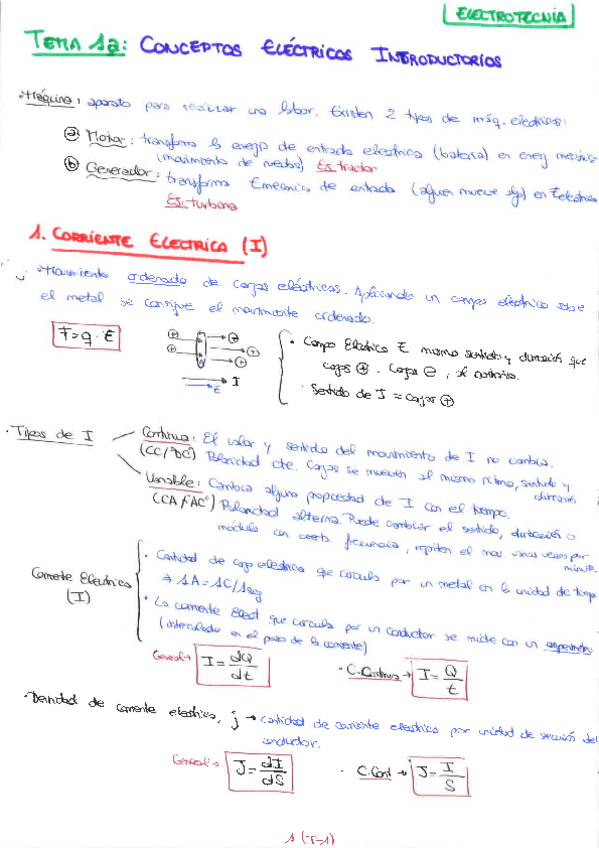 ELECTROTECNIA
TEMA 1a: CONCEPTOS ELÉCTRICOS INTRODUCTORIOS
· Máquina: aparato para realizar una labor. Existen 2 tipos de máq. eléctricas:
ⓐ Motor: transforma la energía de entrada eléctrica (batería) en energ mecánica
(movimiento de ruedas) Ej: tractor
ⓑ Generador: transforma E mecánica de entrada (alguien mueve algo) en E eléctrica
Ej: turbina
1. CORRIENTE ELECTRICA (I)
· Movimiento ordenado de cargas eléctricas. Aplicando un campo eléctrico sobre
el metal se consigue el movimiento ordenado.
F = q · E
I
E
· Campo Eléctrico E mismo sentido y dirección que
cargas ⊕. Cargas ⊖, al contrario.
· Sentido de I = cargas ⊕
· Tipos de I
Continua: El valor y sentido del movimiento de I no cambia.
(CC/DC) Polaridad cte. Cargas se mueven al mismo ritmo, sentido y
dirección
Variable: Cambia alguna propiedad de I con el tiempo.
(CA/AC) Polaridad alterna. Puede cambiar el sentido, dirección o
módulo con cierta frecuencia, repiten el mov. veces por
minuto.
Corriente Eléctrica
(I)
· Cantidad de carga eléctrica que circula por un metal en la unidad de tiempo
⇒ 1A = 1C/1seg
· La corriente eléct que circula por un conductor se mide con un amperímetro
(intercalado en el paso de la corriente)
General → I = dQ/dt
· C. Continua → I = Q/t
· Densidad de corriente eléctrica, j → cantidad de corriente eléctrica por unidad de sección del
conductor.
General → J = dI/dS
· C. Cont → J = I/S
1 (T-1)